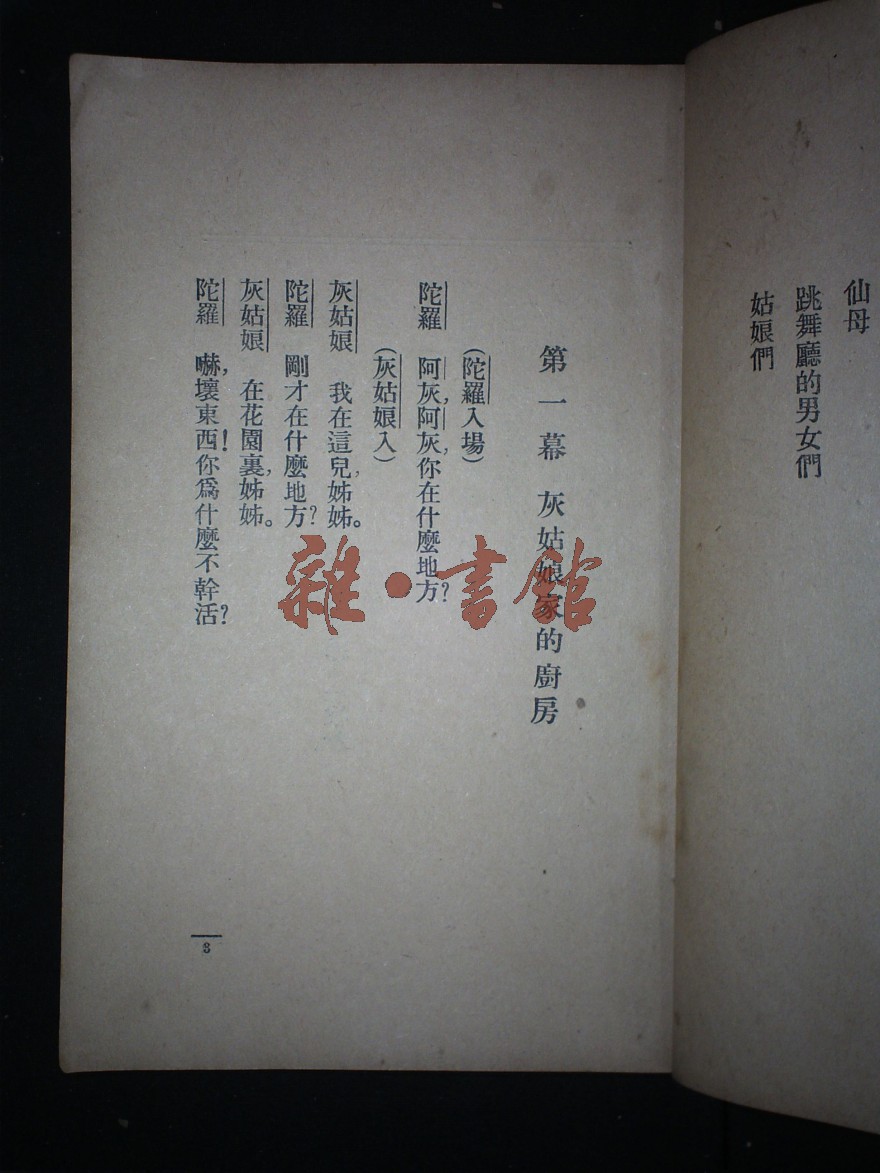 仙母
跳舞廳的男女們
姑娘們
第一幕 灰姑娘家的廚房
(陀羅入場)
陀羅 阿灰,阿灰,你在什麼地方?
(灰姑娘入)
灰姑娘 我在這兒,姊姊。
陀羅 剛才在什麼地方?
灰姑娘 在花園裏,姊姊。
陀羅 嚇,壞東西!你爲什麼不幹活?
3
雜·書館